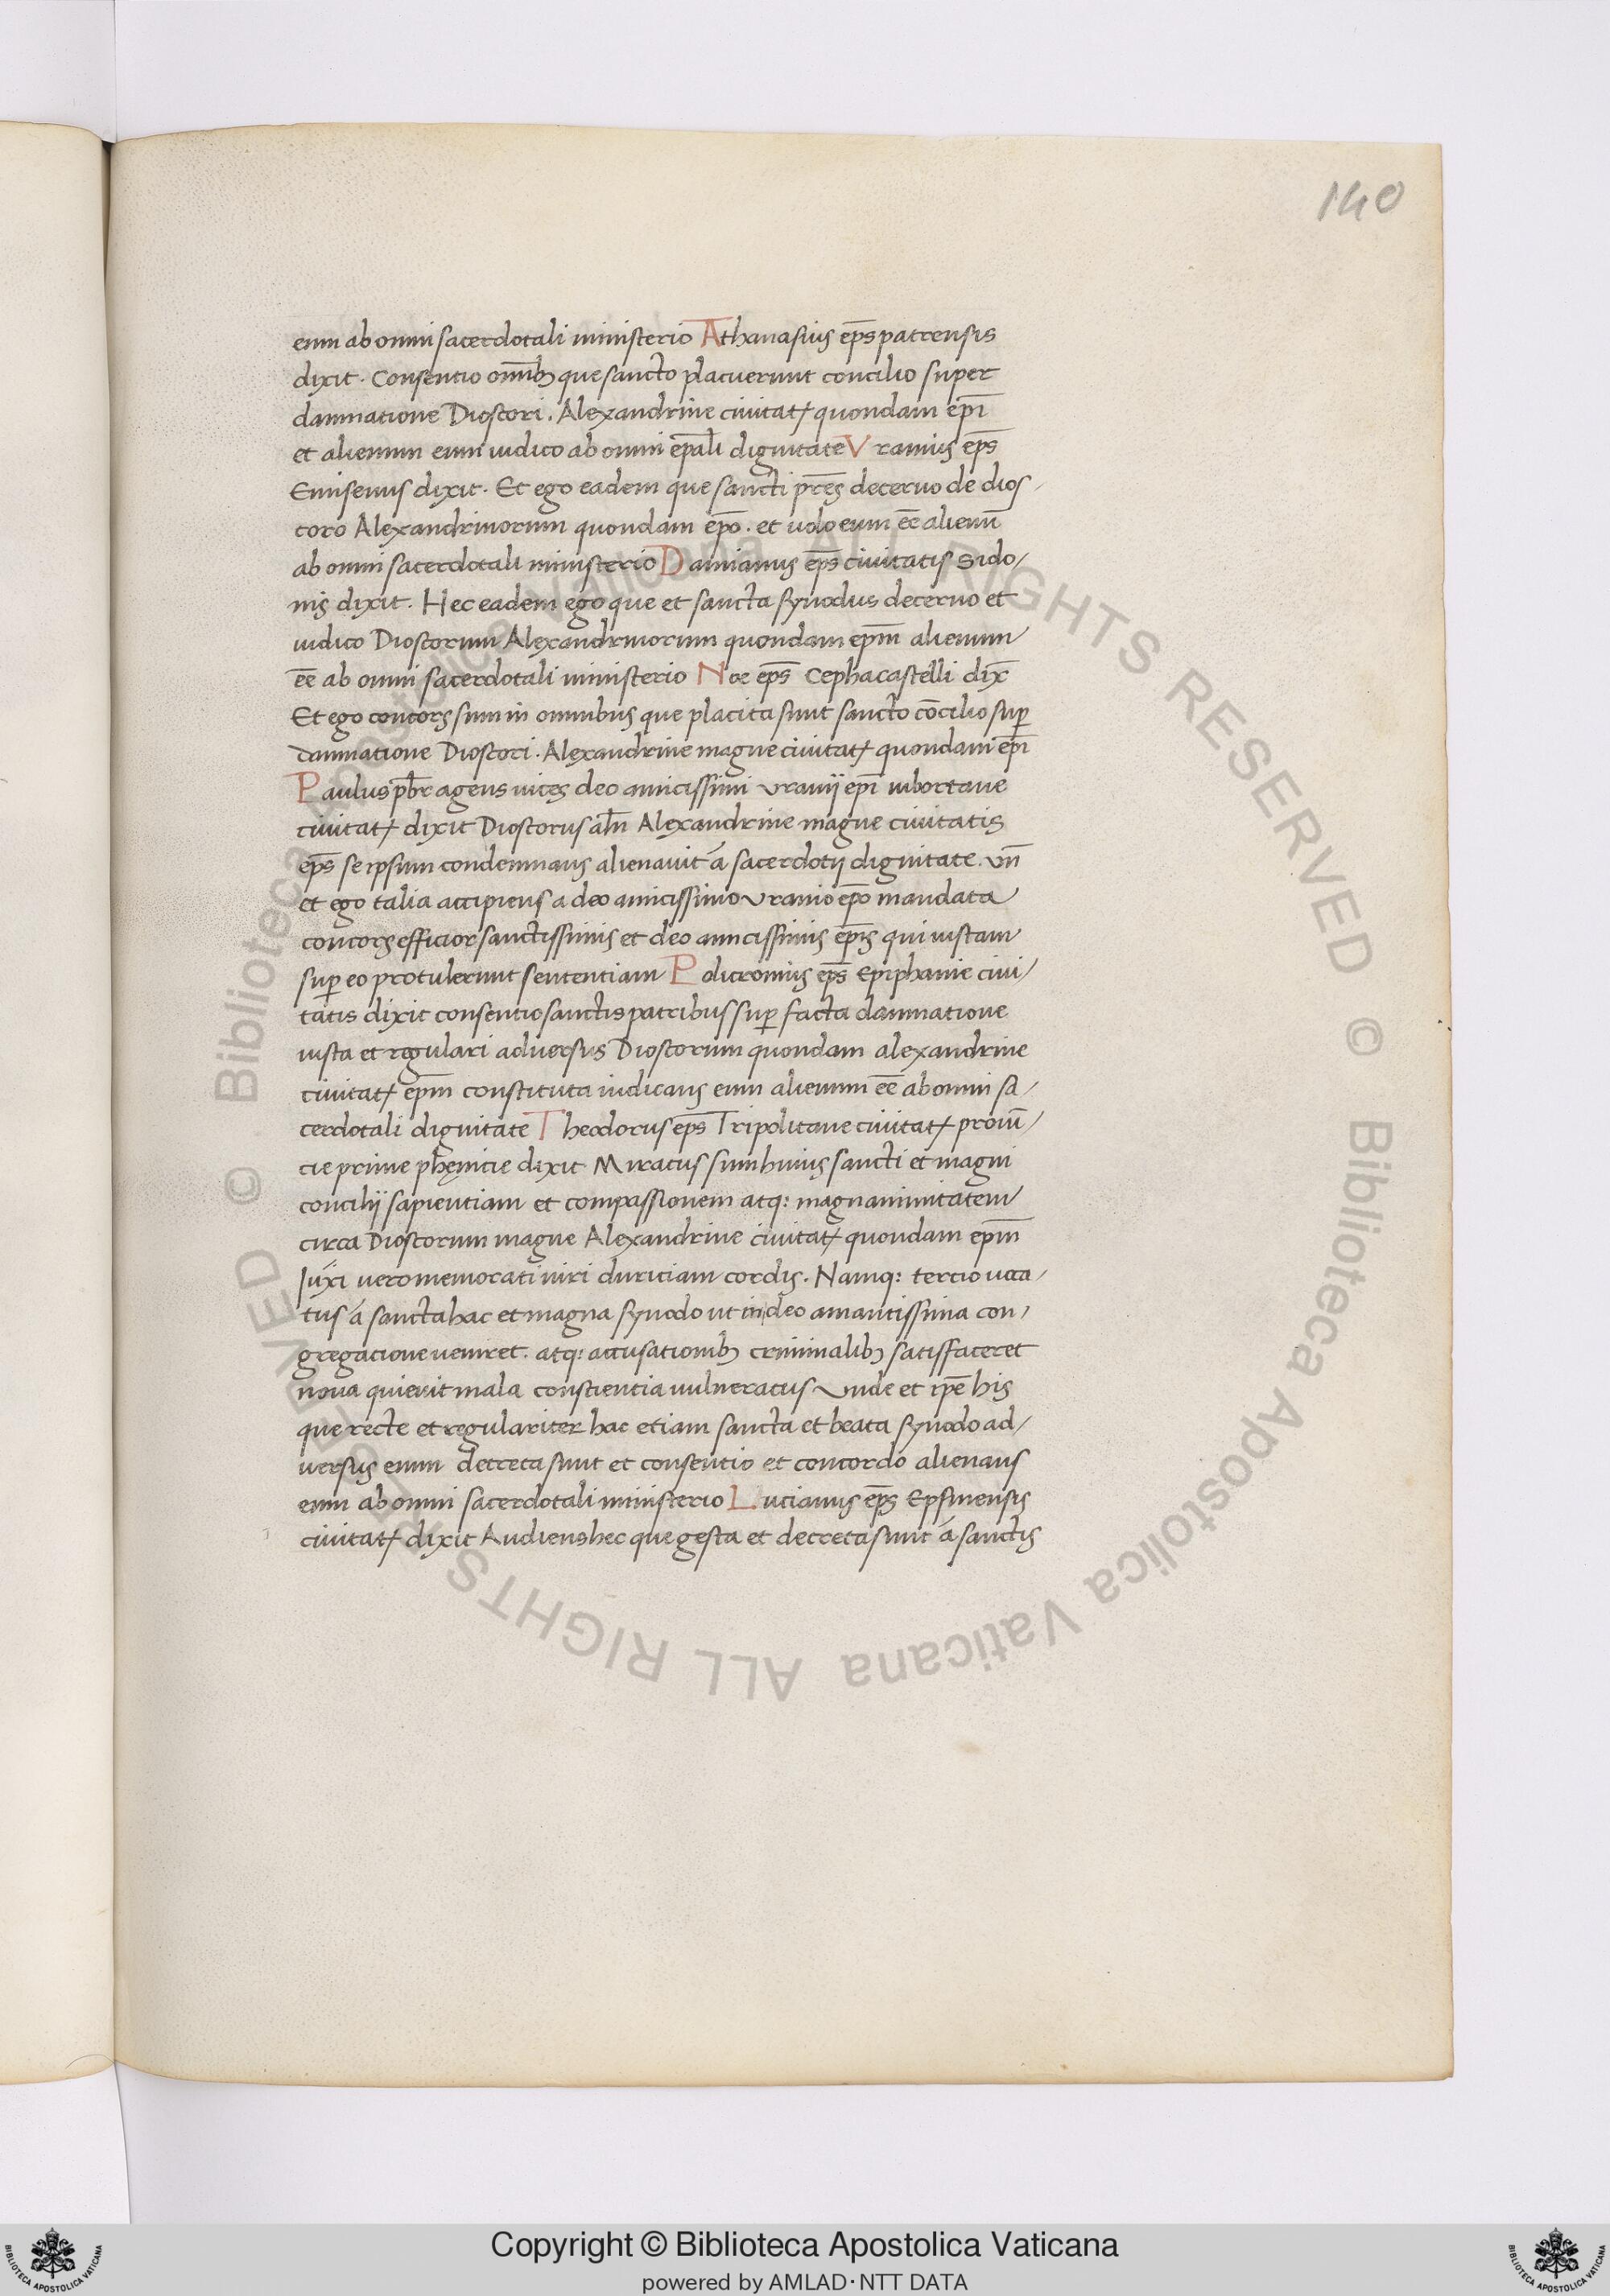 140
eum ab omni sacerdotali ministerio Athanasius ep̅s patrensis
dixit. Consentio om̅ibꝫ que sancto placuerunt concilio super
damnatione Dioscori. Alexandrine ciuitatꝭ quondam ep̅i
et alienum eum iudico ab omni ep̅ali dignitate Vranius ep̅s
Emisenus dixit. Et ego eadem que sancti pr̅es decerno de dios-
coro Alexandrinorum quondam ep̅o. et uolo eum ee̅ alienu̅
ab omni sacerdotali ministerio Damianus ep̅s ciuitatis Sido-
nis dixit. Hec eadem ego que et sancta synodus decerno et
iudico Dioscorum Alexandrinorum quondam ep̅m alienum
ee̅ ab omni sacerdotali ministerio Noe ep̅s Cephacastelli dix̅
Et ego concors sum in omnibus que placita sunt sancto co̅cilio sup̅
damnatione Dioscori. Alexandrine magne ciuitatꝭ quondam ep̅i
Paulus pb̅r agens uices deo amicissimi vranij ep̅i iubortane
ciuitatꝭ dixit Dioscorus ah̅n Alexandrine magne ciuitatis
ep̅s se ipsum condemnans alienauit á sacerdotij dignitate. vn̅
et ego talia accipiens a deo amicissimo vranio ep̅o mandata
concors efficior sanctissimis et deo amicissimis ep̅is qui iustam
sup̅ eo protulerunt sententiam Policronius ep̅s Epiphanie ciui-
tatis dixit consentio sanctis patribus sup̅ facta damnatione
iusta et regulari aduersus Dioscorum quondam alexandrine
ciuitatꝭ ep̅m constituta iudicans eum alienum ee̅ ab omni sa-
cerdotali dignitate Theodorus ep̅s Tripolitane ciuitatꝭ prouı̅-
cie prime phęnicie dixit Miratus sum huius sancti et magni
concilij sapientiam et compassionem atq: magnanimitatem
circa Dioscorum magne Alexandrine ciuitatꝭ quondam ep̅m
luxi vero memorati uiri duriciam cordis. Namq: tercio uoca-
tus á sancta hac et magna synodo ut in deo amantissima con-
gregacione ueniret. atq: accusationibꝫ criminalibꝫ satisfaceret
noua quieuit mala conscientia uulneratus vnde et ip̅e his
que recte et regulariter hac etiam sancta et beata synodo ad-
uersus eum decreta sunt et consentio et concordo alienans
eum ab omni sacerdotali ministerio Lucianus ep̅s Epsinensis
ciuitatꝭ dixit Audiens hec que gesta et decreta sunt á sanctis
© Biblioteca Apostolica Vaticana ALL RIGHTS RESERVED
© Biblioteca Apostolica Vaticana ALL RIGHTS RESERVED
Copyright © Biblioteca Apostolica Vaticana
powered by AMLAD·NTT DATA
BIBLIOTECA APOSTOLICA VATICANA
BIBLIOTECA APOSTOLICA VATICANA